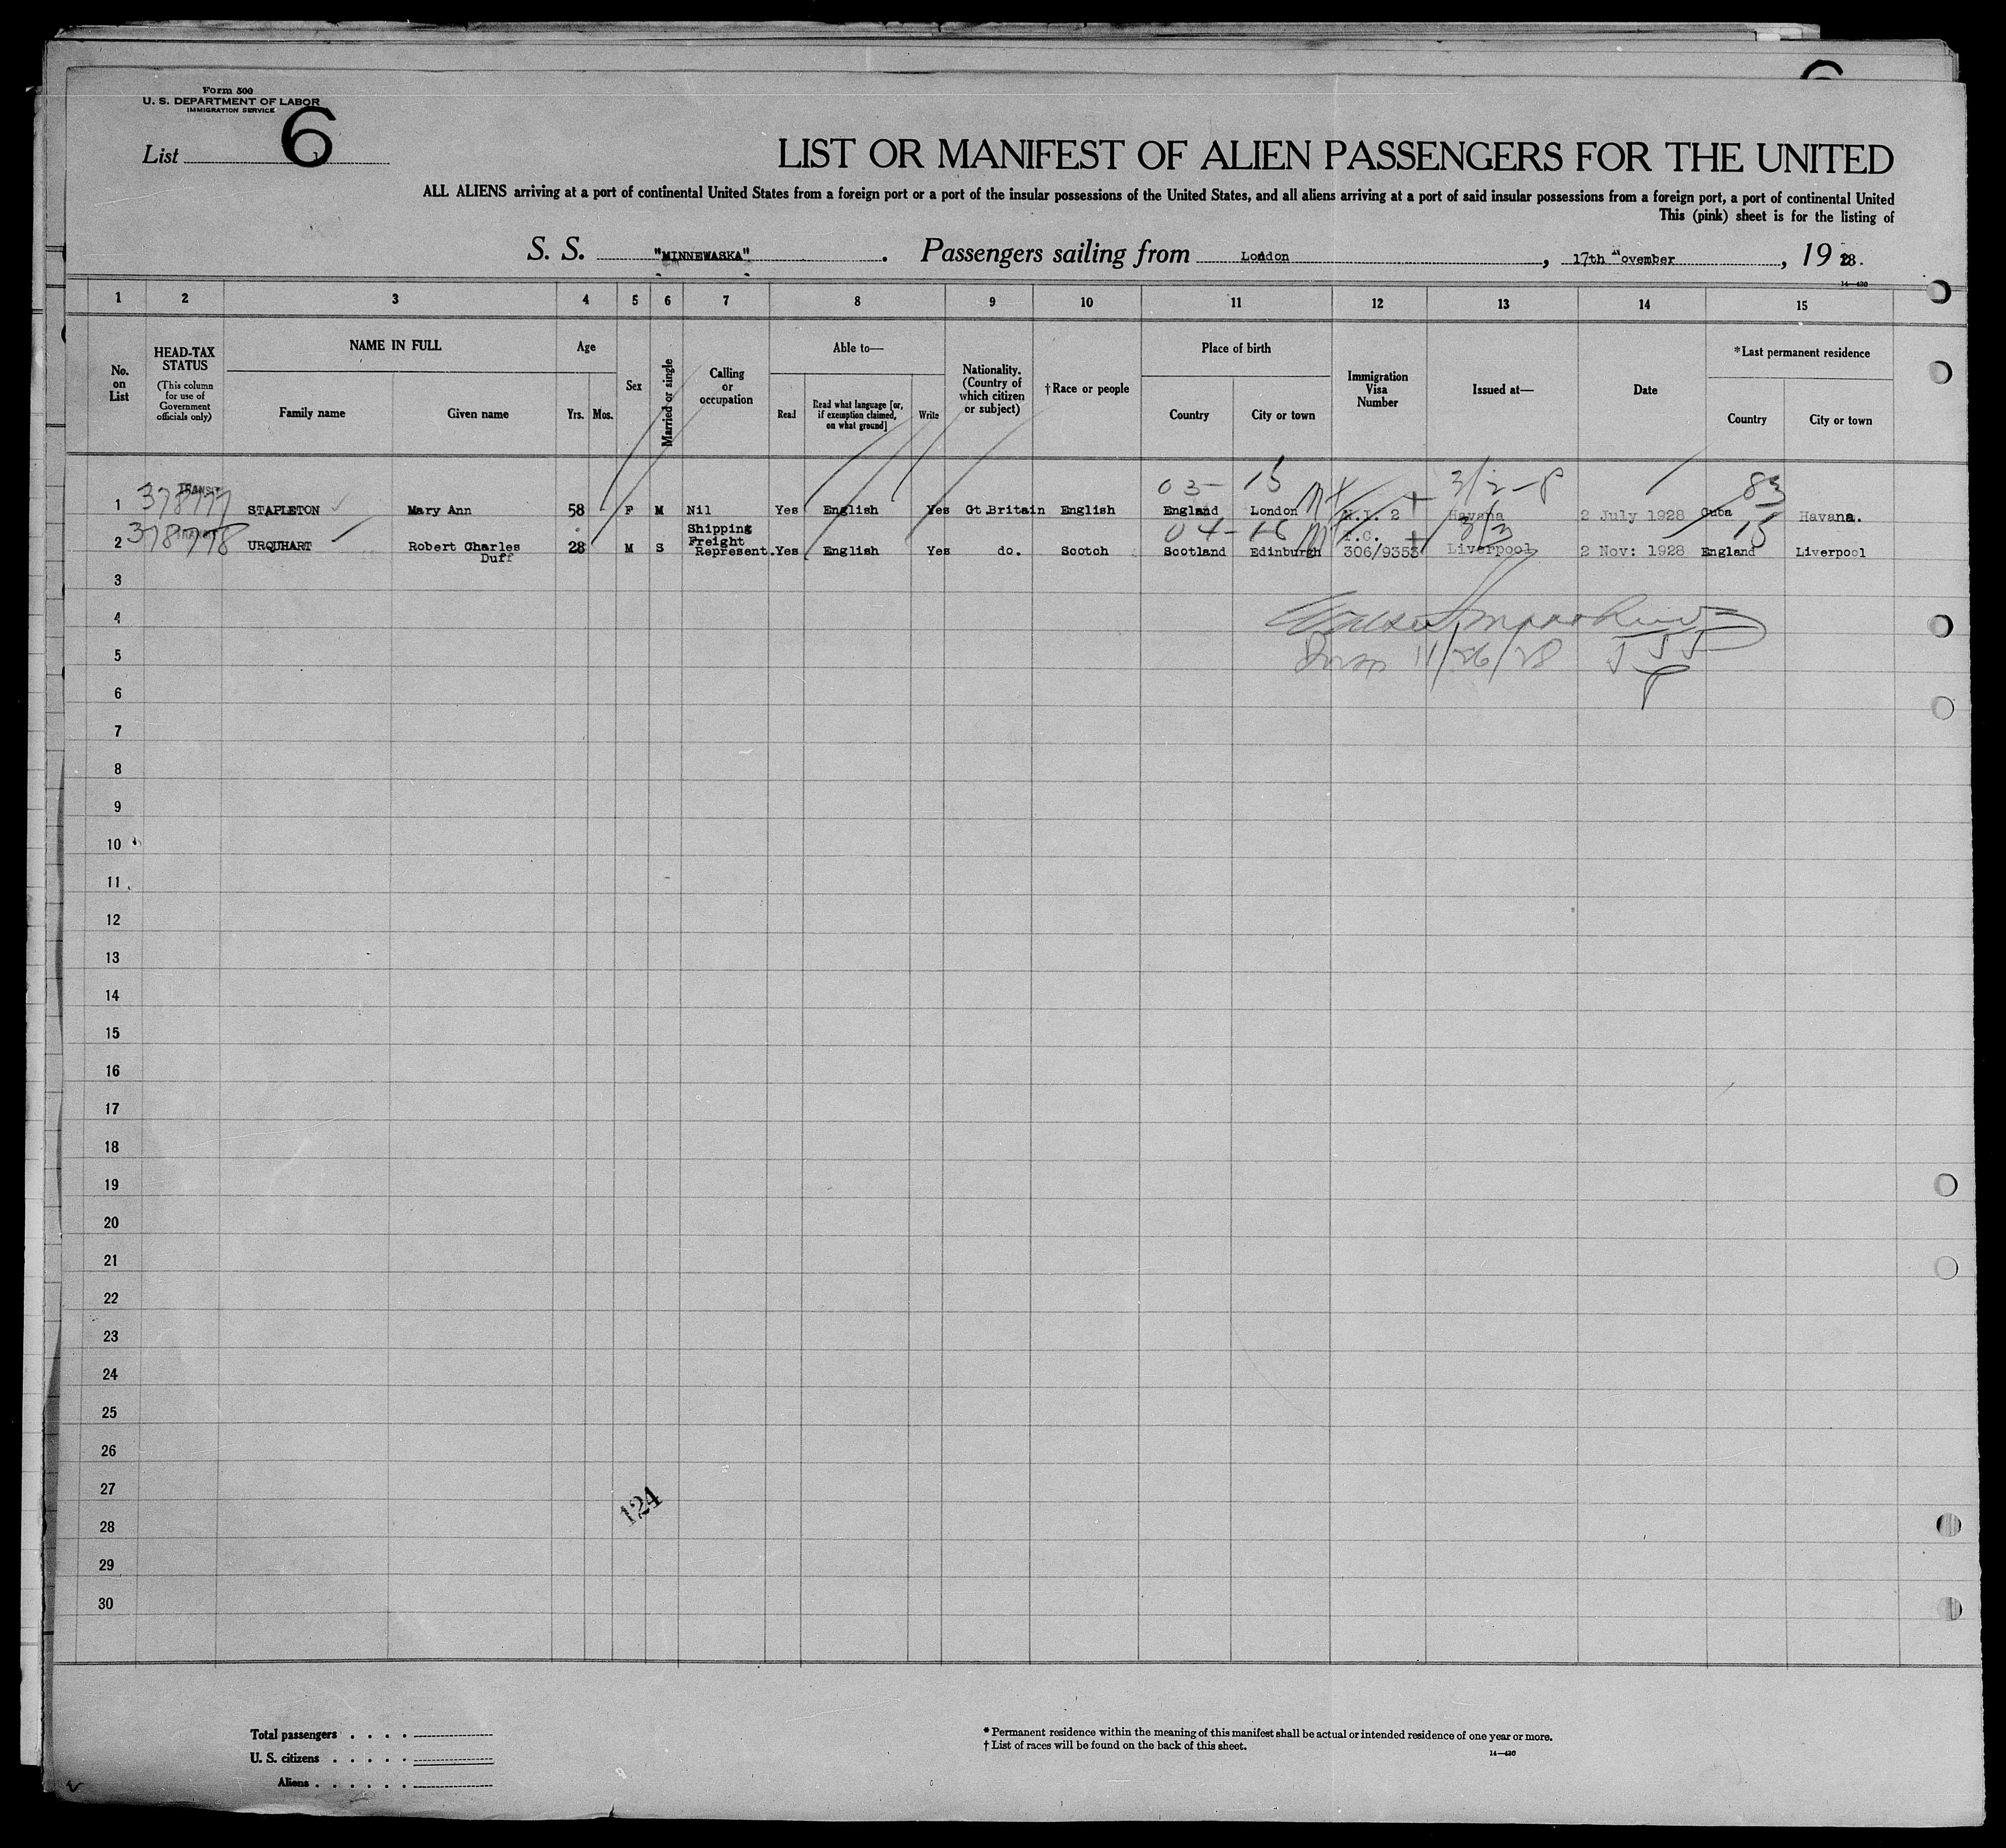 Form 500
U. S. DEPARTMENT OF LABOR
IMMIGRATION SERVICE
List 6
LIST OR MANIFEST OF ALIEN PASSENGERS FOR THE UNITED
ALL ALIENS arriving at a port of continental United States from a foreign port or a port of the insular possessions of the United States, and all aliens arriving at a port of said insular possessions from a foreign port, a port of continental United
This (pink) sheet is for the listing of
S. S. "MINNEWASKA" . Passengers sailing from London , 17th November , 19 28.
14—430
1 2 3 4 5 6 7 8 9 10 11 12 13 14 15
No. on List
HEAD-TAX STATUS (This column for use of Government officials only)
NAME IN FULL
Family name Given name
Age
Yrs. Mos.
Sex
Married or single
Calling or occupation
Able to—
Read Read what language [or, if exemption claimed, on what ground] Write
Nationality. (Country of which citizen or subject)
† Race or people
Place of birth
Country City or town
Immigration Visa Number
Issued at—
Date
*Last permanent residence
Country City or town
03- 15 3/2-8 83
1 378777 TRANSIT STAPLETON Mary Ann 58 F M Nil Yes English Yes Gt.Britain English England London N.I. 2 Havana 2 July 1928 Cuba Havana.
04-16 3/3 15
2 378778 TRANSIT URQUHART Robert Charles Duff 28 M S Shipping Freight Represent. Yes English Yes do. Scotch Scotland Edinburgh 306/9353 Liverpool 2 Nov: 1928 England Liverpool
3
4
5 11/26/28
6
7
8
9
10
11
12
13
14
15
16
17
18
19
20
21
22
23
24
25
26
27
124
28
29
30
Total passengers . . . .
U. S. citizens . . . . .
Aliens . . . . . .
* Permanent residence within the meaning of this manifest shall be actual or intended residence of one year or more.
† List of races will be found on the back of this sheet.
14—430